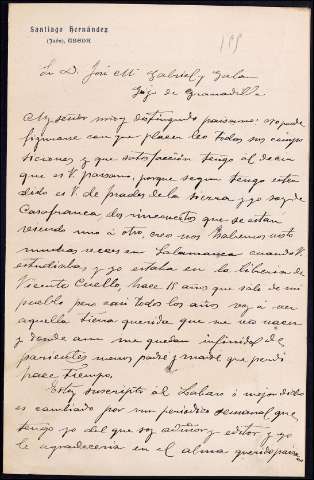 Santiago Hernández
(Jaén), UBEDA
Sr D. José Mª Gabriel y Galan
Guijo de Granadilla
Muy señor mio y distinguido paisano: No puede
figurarse con que placer leo todas sus compo
siciones y que satisfacción tengo al decir
que es V. paisano, porque segun tengo enten
dido es V. de frades de la sierra y yo soy de
Casafranca, dos pueblecitos que se están
viendo uno á otro, creo nos habremos visto
muchas veces en Salamanca cuando V.
estudiaba y yo estaba en la libreria de
Vicente Cuello, hace 15 años que salí de mi
pueblo pero casi todos los años voy á ver
aquella tierra querida que me vio nacer
y donde aun me quedan infinidad de
parientes menos padre y madre que perdi
hace tiempo.
Estoy suscripto al Lábaro ó mejor dicho
es cambiado por un periódico semanal que
tengo yo del que soy editor y yo
le agradeceria en el alma querido paisano